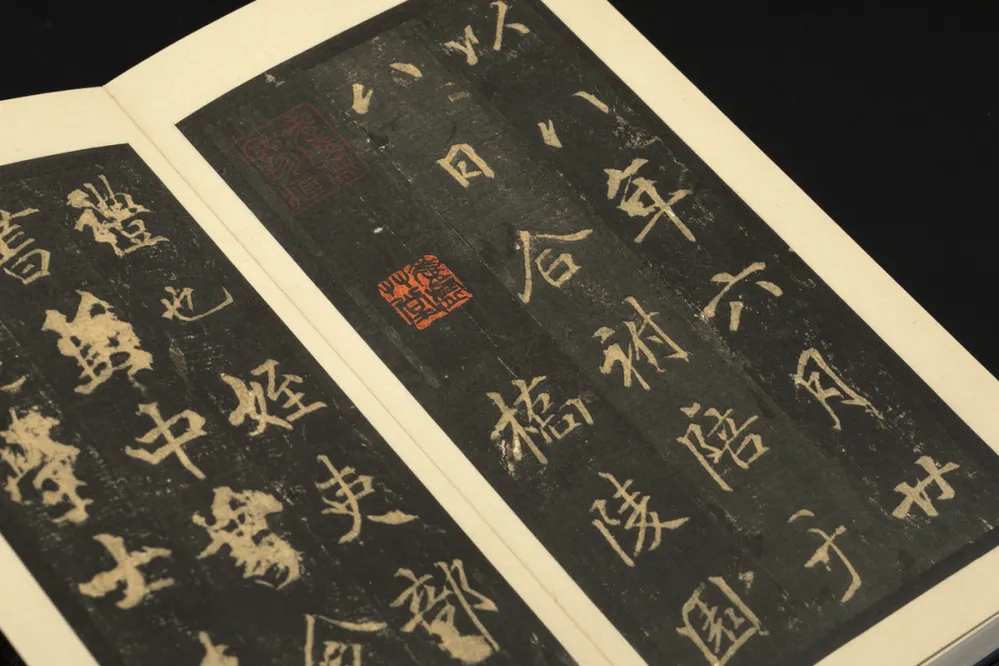 以八年六月廿
八日合祔陪于
橋陵園
禮也姪吏部
書兼中書令
學士